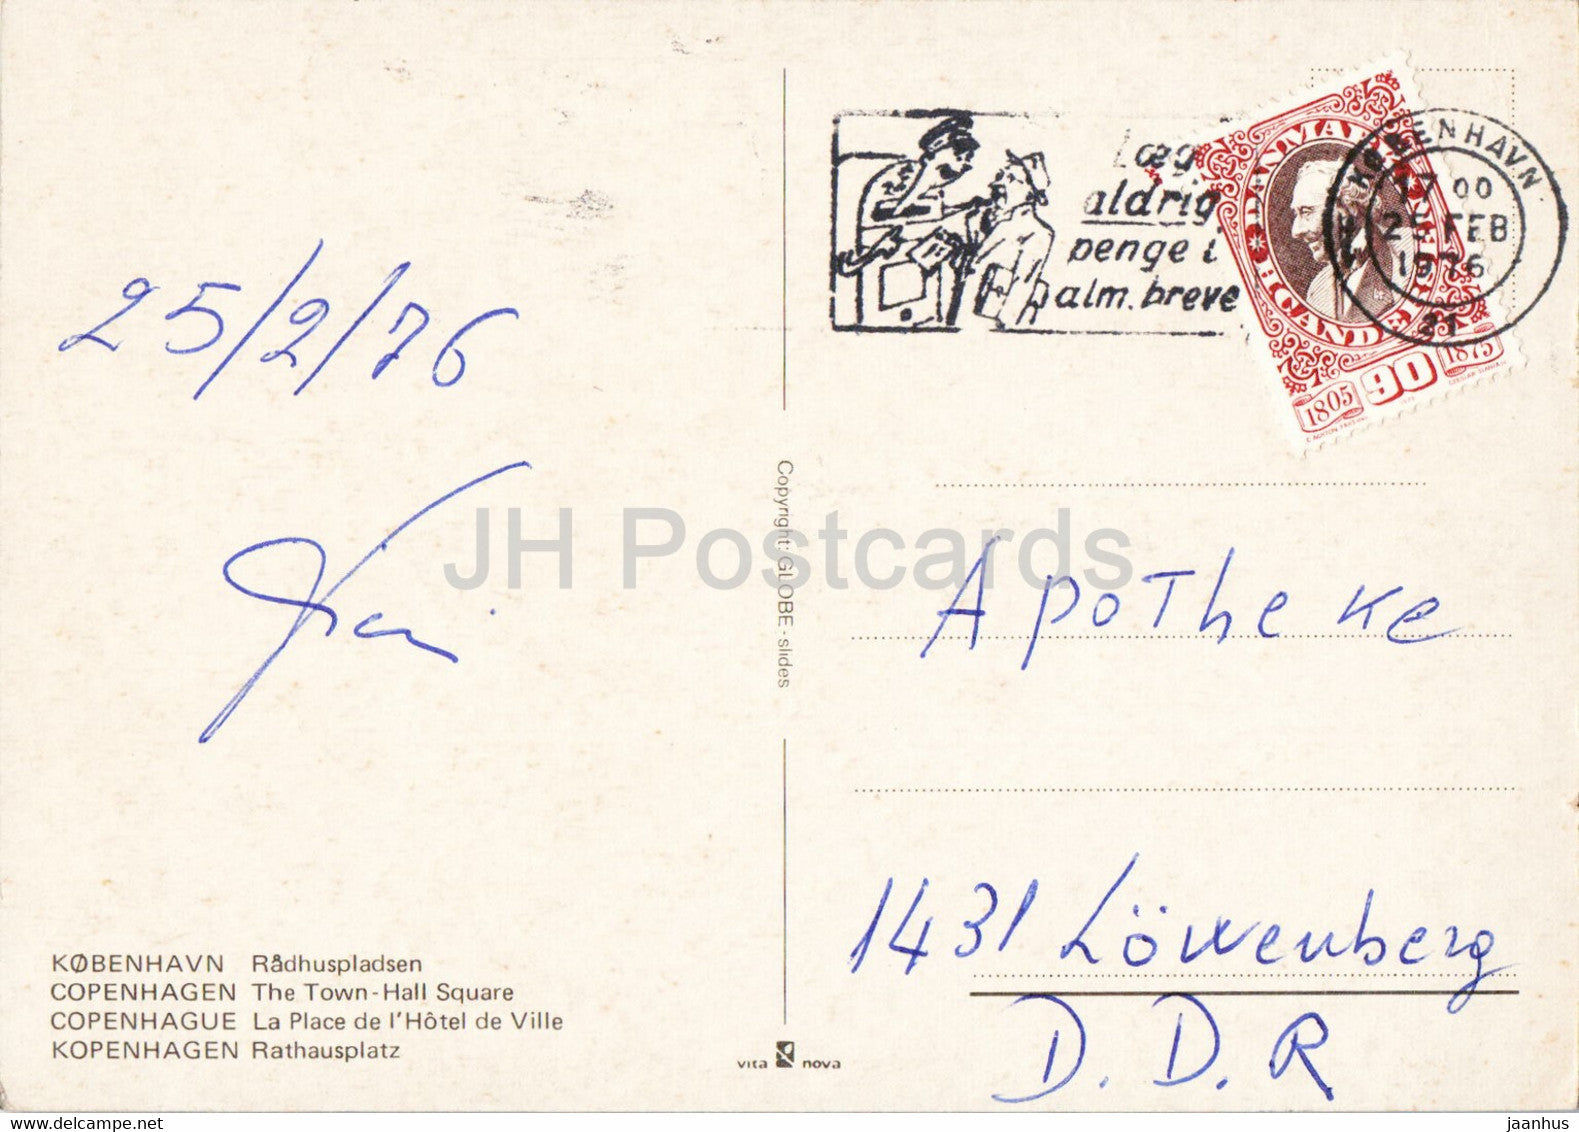 Læg
aldrig
penge i
alm. breve
KØBENHAVN
17 00
25 FEB
1976
21
DANMARK
H.C. ANDERSEN
1805 90 1875
25/2/76
JH Postcards
Copyright: GLOBE - slides
Apotheke
1431 Löwenberg
D. D. R
KØBENHAVN Rådhuspladsen
COPENHAGEN The Town-Hall Square
COPENHAGUE La Place de l'Hôtel de Ville
KOPENHAGEN Rathausplatz
vita nova
www.delcampe.net
jaanhus